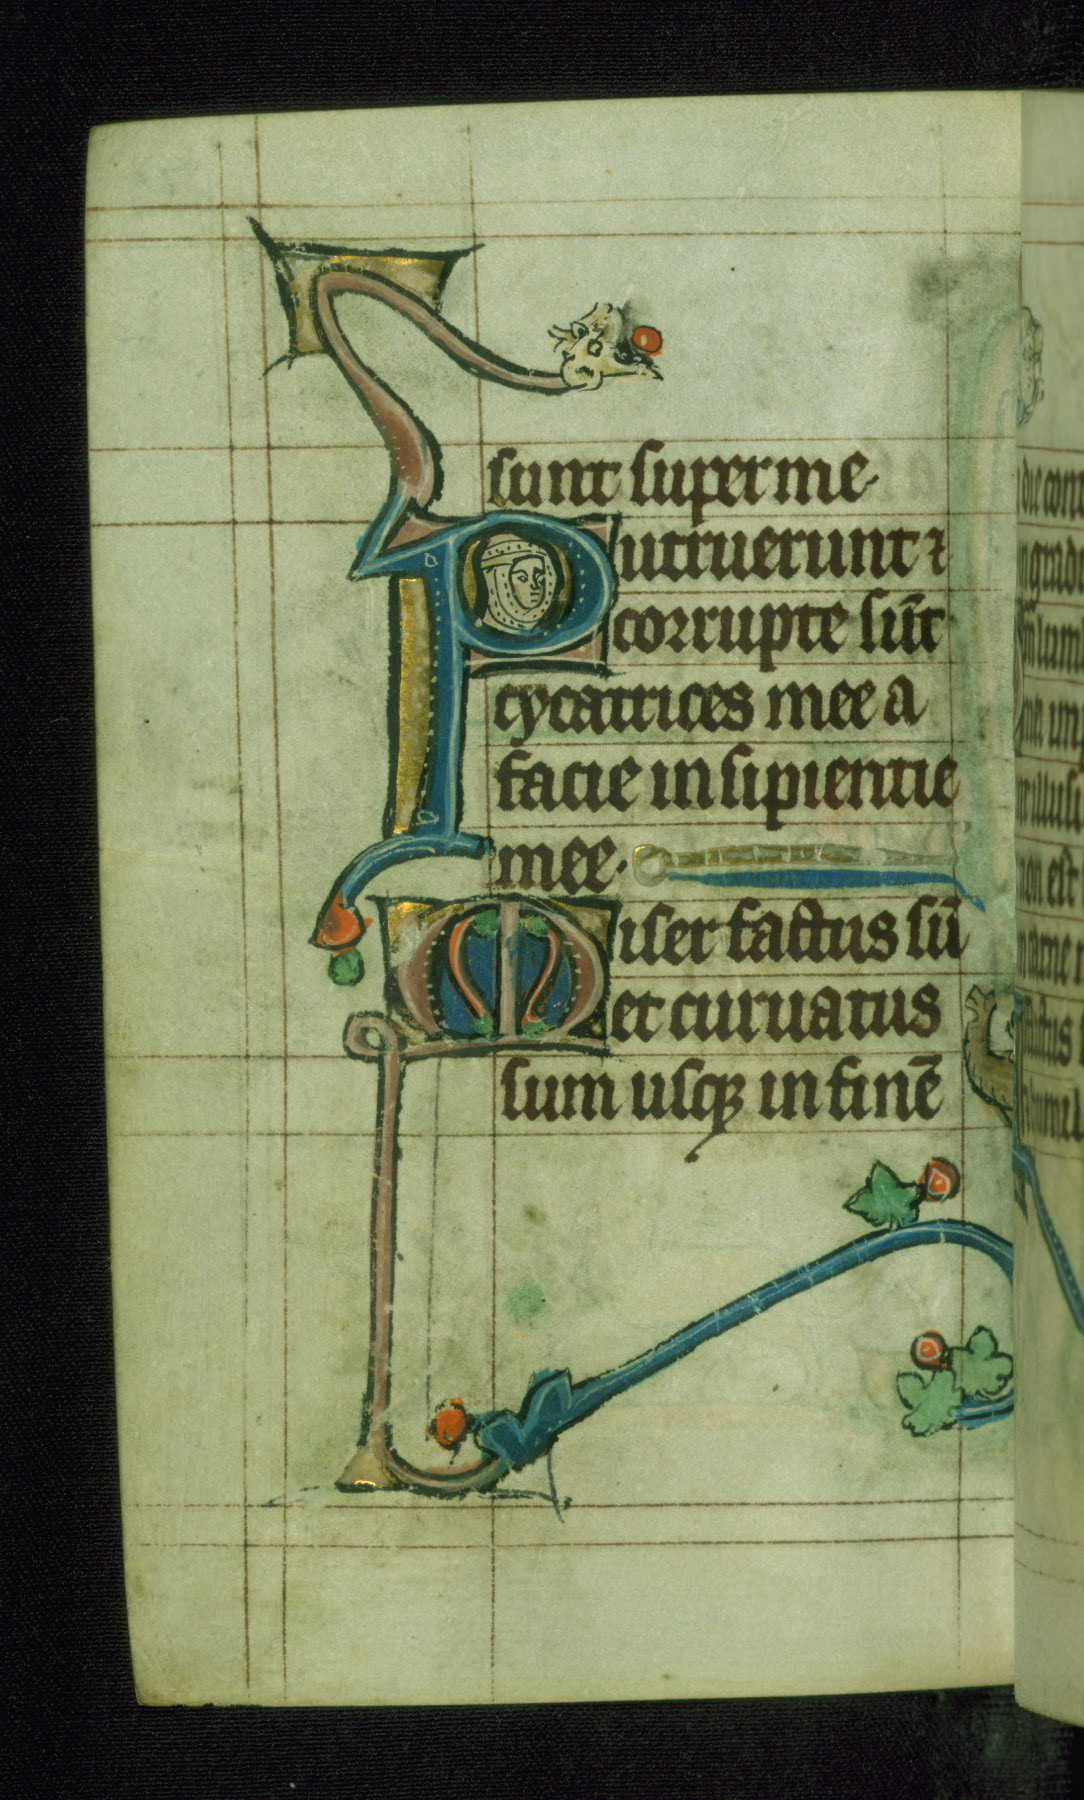 sunt super me
Putruerunt ⁊
corrupte sūt
cycatrices mee a
facie insipientie
mee.
Miser factus sū
et curuatus
sum usqꝫ in finē